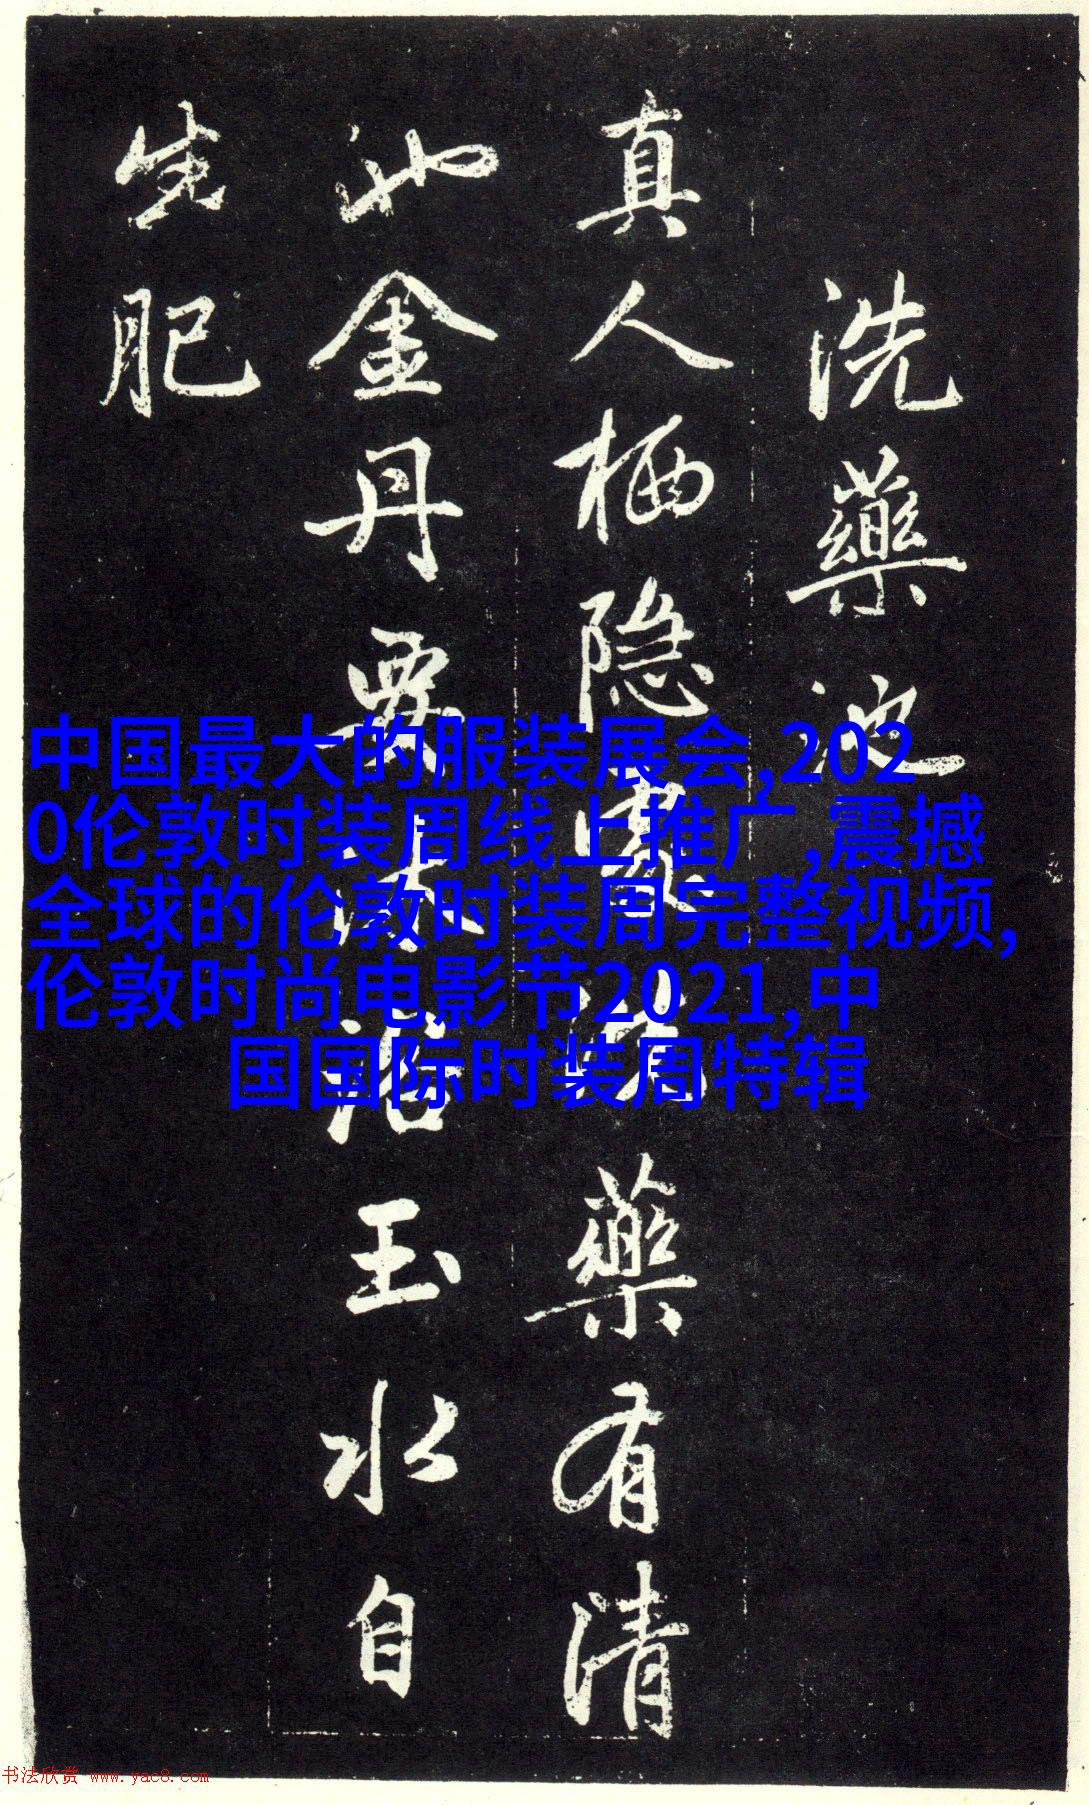 洗藥池
真人栖隐洗藥有清
池金丹要沐浴玉水自
生肥
中国最大的服装展会,202
0伦敦时装周线上推广,震撼
全球的伦敦时装周完整视频,
伦敦时尚电影节2021,中
国国际时装周特辑
书法欣赏 www.yac8.com